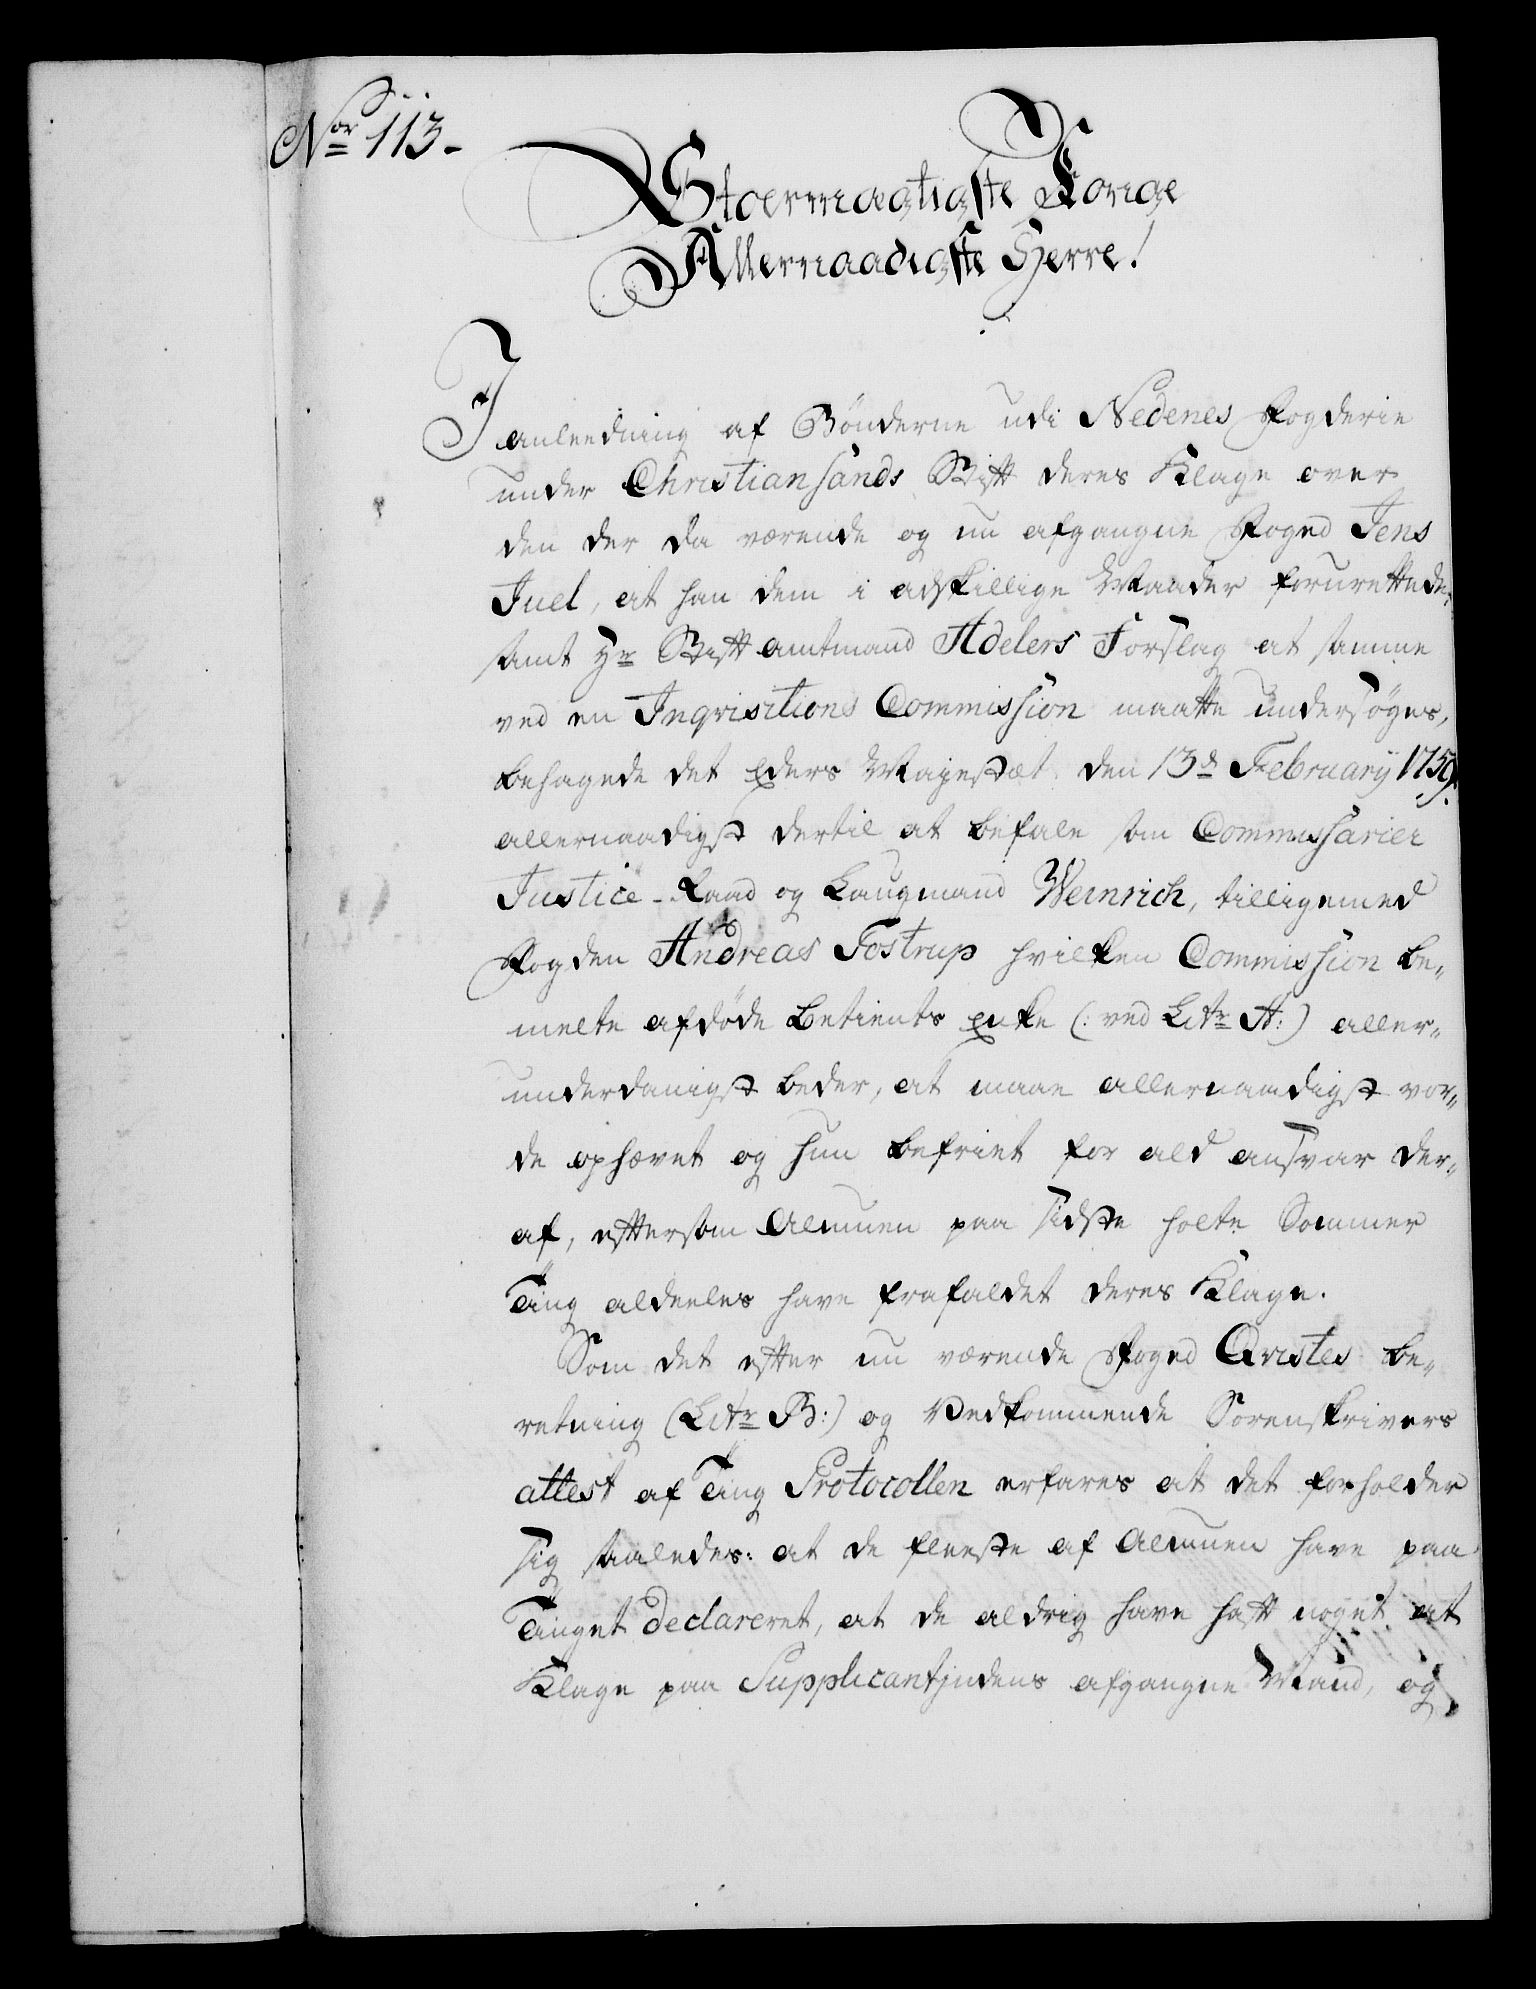 Nor 113.
Stoermægtigste Konge
Allernaadigste Herre!
I anleedning af Bönderne udi Nedenes Fogderie
under Christiansands Stift deres Klage over
den der da værende og nu afgangne Foged Jens
Juel, at han dem i adskillige Maader forurettede,
samt Hr Stiftamtmand Adelers Forslag at samme
ved en Inqvisitions Commission maatte undersöges,
behagede det Eders Mayestæt den 13de February 1759.
allernaadigst dertil at befale som Commissarier
Justice-Raad og Laugmand Weinrich, tilligemed
Fogden Andreas Fostrup hvilken Commission be„
melte afdöde betients Enke (: ved Litr A:) aller„
underdanigst beder, at maae allernaadigst vor„
de ophævet og hun befriet for ald ansvar der„
af, eftersom Almuen paa sidste holte Sommer
Ting aldeeles have frafaldet deres Klage.
Som det efter nu værende Foged Qvistes be„
retning (Litr B:) og Vedkommende Sorenskrivers
attest af Ting Protocollen erfares at det forholder
sig saaledes: at de fleeste af Almuen have paa
Tinget declareret, at de aldrig have haft noget at
Klage paa Supplicantindens afgangne Mand, og